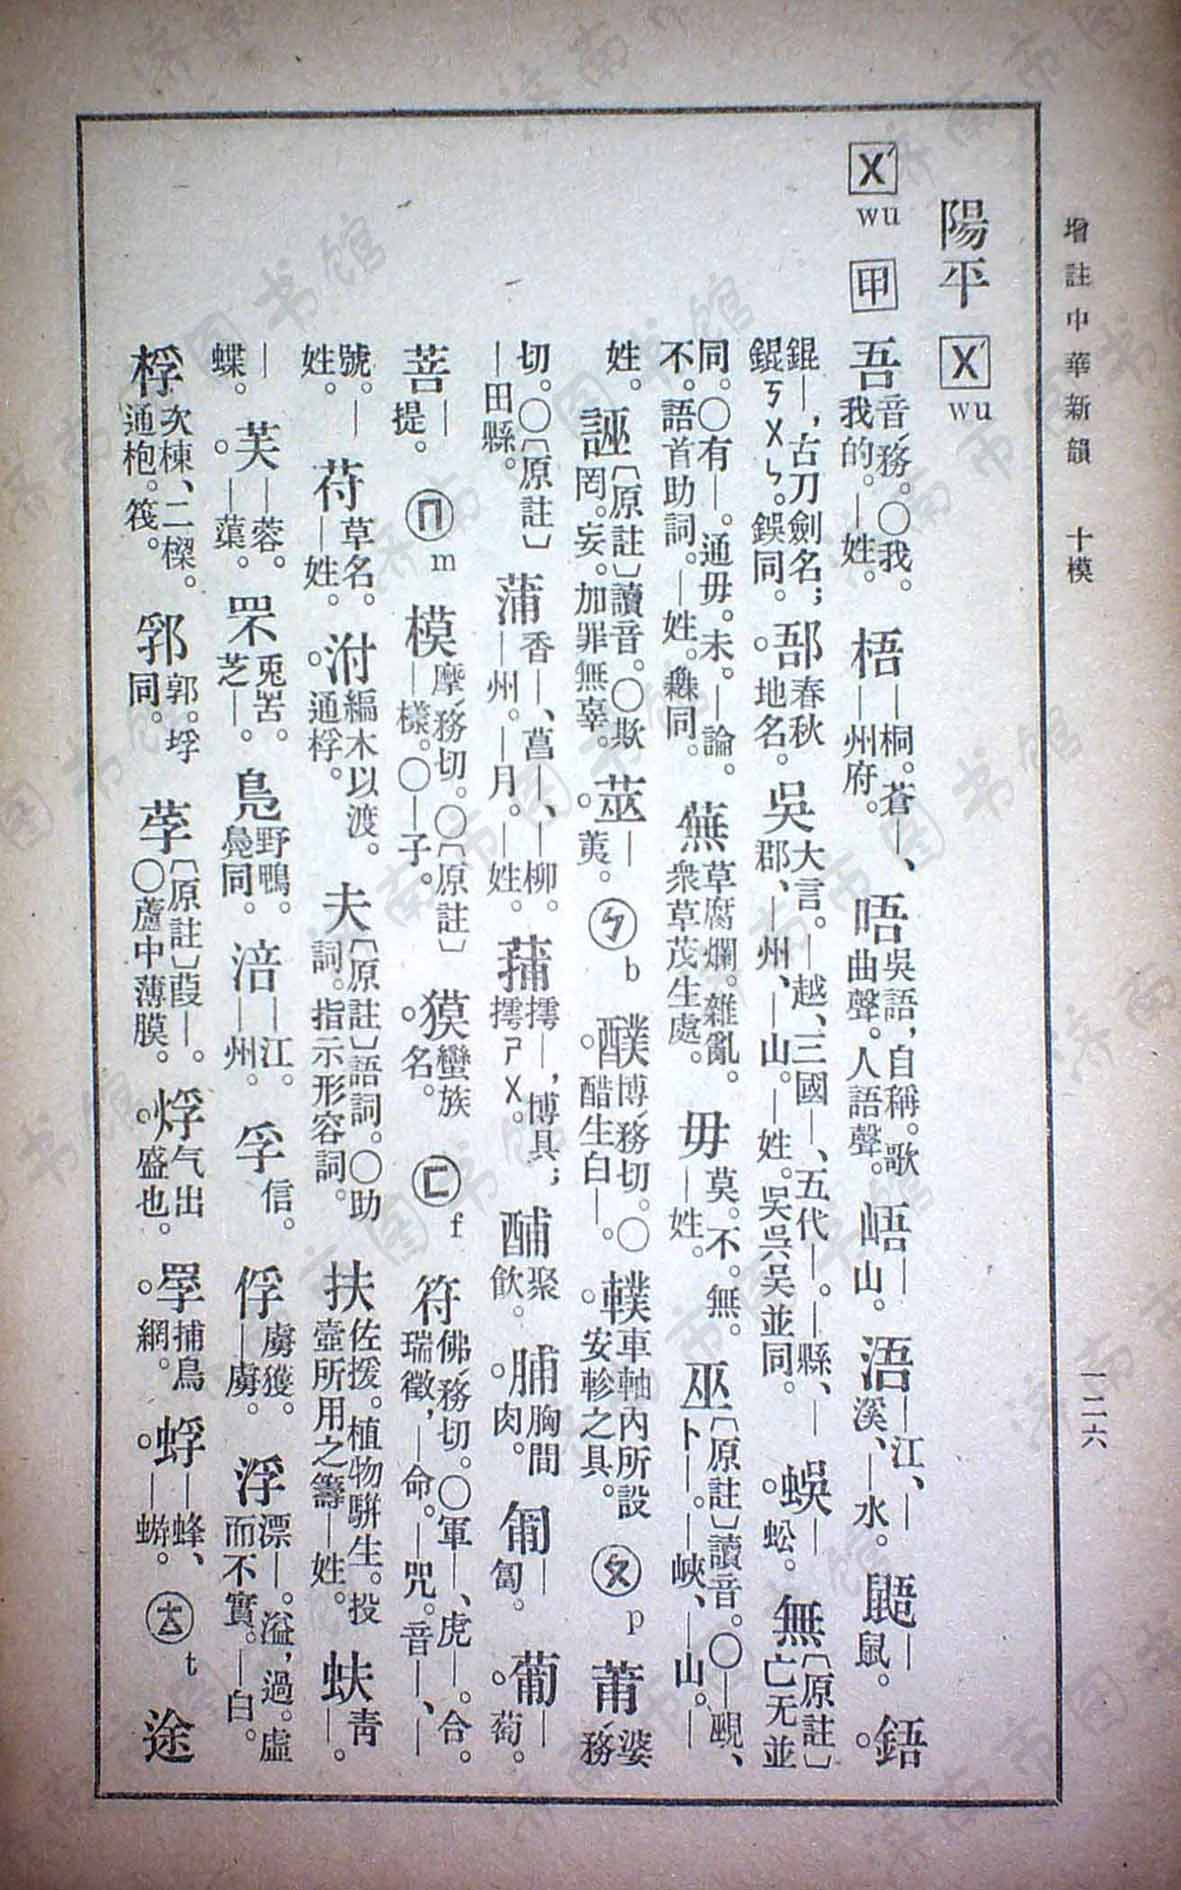 增註中華新韻　十模
一二六
陽平　ㄨˊ wu
ㄨˊ wu　甲　吾音務。○我。我的。—姓。　梧—桐。蒼—、—州府。　唔吳語，自稱。歌曲聲。人語聲。　峿—山。　浯—江、—溪、—水。　鼯—鼠。　鋙。
錕—，古刀劍名；錕ㄎㄨㄣ。鋘同。　郚春秋地名。　吳大言。—越、三國—、五代—。—縣、—郡、—州、—山。—姓。吳呉吴並同。　蜈—蚣。　無〔原註〕亡无並
同。○有—。通毋。未。—論。不。語首助詞。—姓。橆同。　蕪草腐爛。雜亂。衆草茂生處。　毋莫。不。無。—姓。　巫〔原註〕讀音。○—覡、卜—。—峽、—山。—
姓。　誣〔原註〕讀音。○欺罔。妄。加罪無辜。　莁—荑。　ㄅ b　醭博務切。○醋生白—。　轐車軸內所設安軫之具。　ㄆ p　莆婆務
切。○〔原註〕—田縣。　蒲香—、菖—、—柳。—州。—月。—姓。　蒱摴—，博具；摴ㄕㄨ。　酺聚飲。　脯胸間肉。　匍—匐。　葡—萄。
菩—提。　ㄇ m　模摩務切。○〔原註〕—樣。○—子。　獏蠻族名。　ㄈ f　符佛務切。○軍—、虎—。合。瑞徵，—命。—咒。音—、—
號。—姓。　苻草名。—姓。　泭編木以渡。通桴。　夫〔原註〕語詞。○助詞。指示形容詞。　扶佐援。植物騈生。投壺所用之籌—姓。　蚨青—。
—蝶。　芙—蓉。—蕖。　罘兎罟。芝—。　鳧野鴨。鳬同。　涪—江。—州。　孚信。　俘虜獲。—虜。　浮漂—。溢，過。虛而不實。—白。
桴次棟、二樑。通枹。筏。　郛郭。垺同。　莩〔原註〕葭—。○蘆中薄膜。　烰气出。盛也。　罦捕鳥網。　蜉—蜂、—蝣。　ㄊ t　途